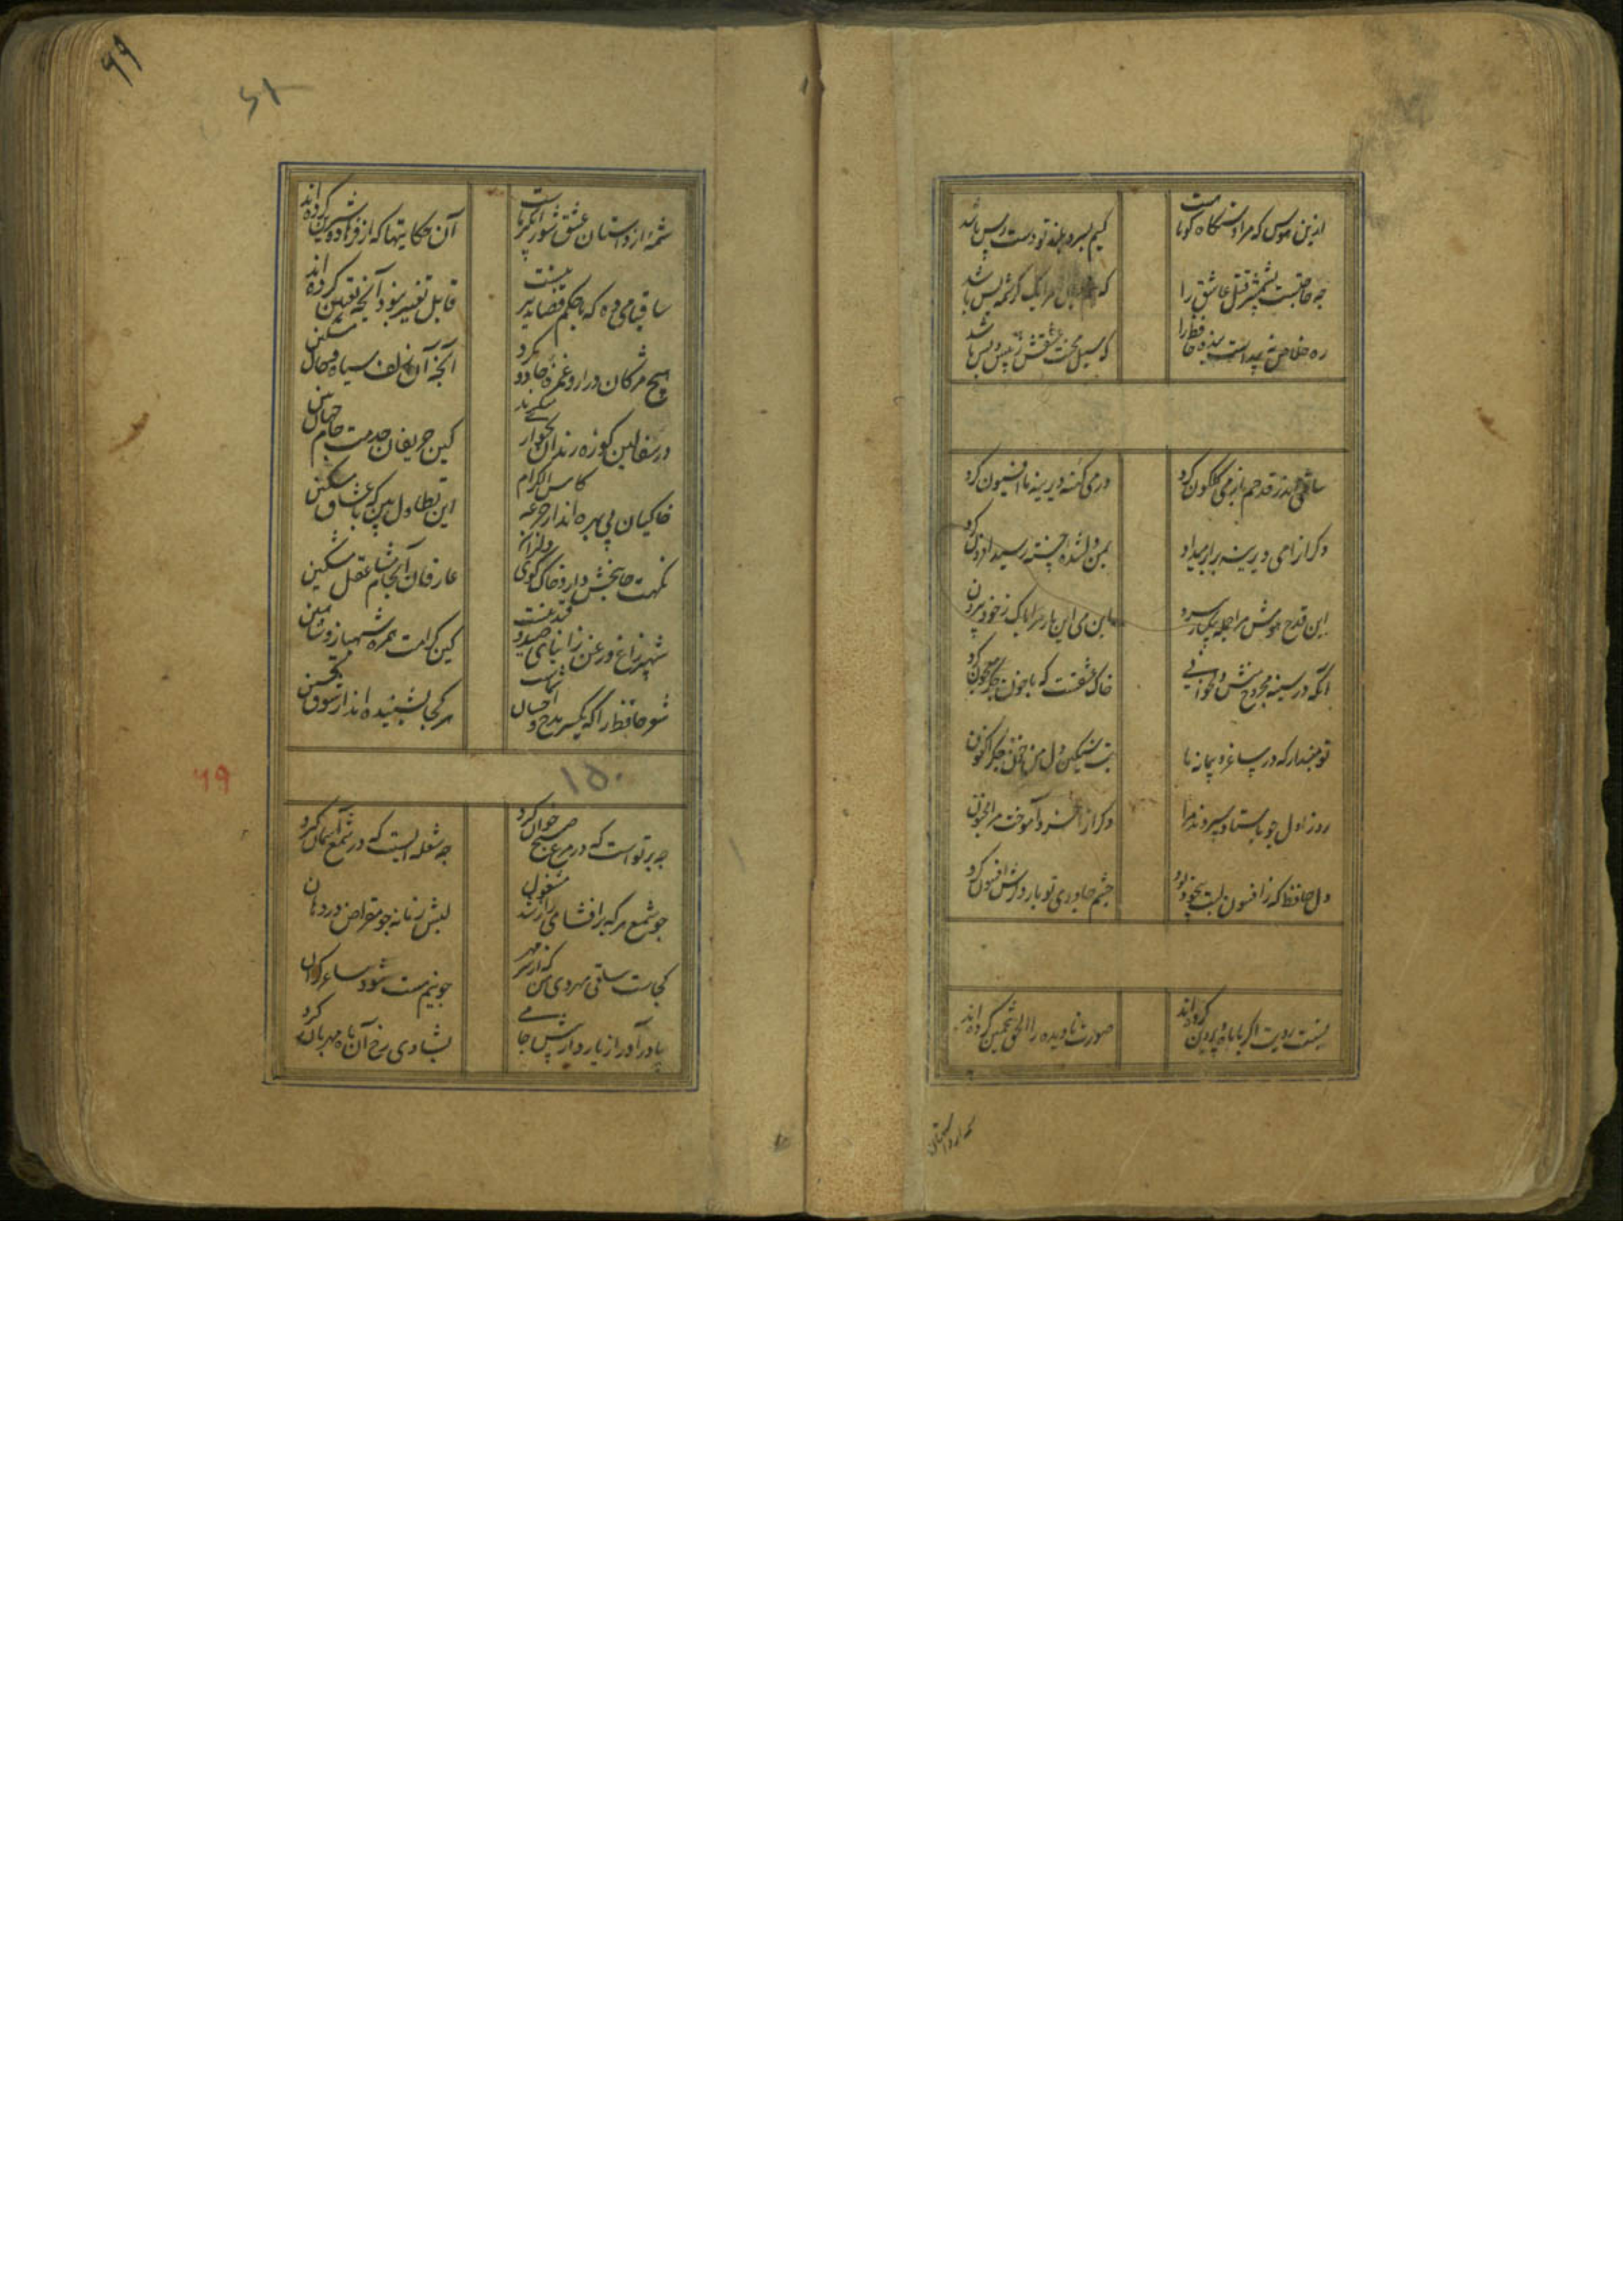 ازین هوس که مرا دستگاه کوتاهست
کیم بسرو بلند تو دست رس باشد
چه حاجتست بشمشیر قتل عاشق را
که مرا یک کرشمه بس باشد
ره خلاص پیداست بنده حافظ را
که سیل محنت عشقش ز پیش و پس باشد
ساقی اندر قدحم باز می گلگون کرد
در می کهنه دیرینه ما افیون کرد
دگرانرا می دیرینه برابر میداد
بمن دلشده چون رسید افزون کرد
این قدح هوش مرا جمله بیکبار ببرد
این می این بار مرا پاک ز خود بیرون کرد
آنکه در سینه مجروح منش
خاک عشقست که با خون جگر معجون کرد
تو مپندار که در ساغر و پیمانه ما
بت سنگین دل من خون جگر اکنون
روز اول چو باستاد سپردند مرا
دگرانرا خرد آموخت مرا مجنون
دل حافظ که ز افسون لبت بیخود بود
چشم جادوی تو بار دگرش افسون کرد
نسبت رویت اگر با ماه و پروین کرده‌اند
صورت نادیده را الحق تخمین کرده‌اند
شمه از داستان
۹۹
شمه از داستان عشق شورانگیز ماست
آن حکایتها که از فرهاد و شیرین کرده‌اند
ساقیا می ده که با حکم قضا تدبیر نیست
قابل تغییر نبود آنچه تعیین کرده‌اند
هیچ مژگان دراز و غمزه جادو نکرد
آنچه آن زلف سیاه و خال مشکین
در سفالین کوزه رندان بخواری منگرید
کین حریفان خدمت جام جهان بین
خاکیان بی بهره‌اند از جرعه کاس الکرام
این تطاول بین که با عشاق مسکین
نکهت جانبخش دارد خاک کوی دلبران
عارفان آنجا مشام عقل مشکین
شهپر زاغ و زغن زیبای صید و قید نیست
کین کرامت همره شهباز و شاهین
شعر حافظ را که یکسر مدح و احسان شماست
هر کجا بشنیده‌اند از شوق تحسین
۱۵۰
۶۹
چه پرتو است که در مرغ صبح خوان کرد
چه شعله ایست که در شمع آسمان گیرد
چو شمع هر که برافشای راز شد مشغول
لبش زمانه چو مقراض در دهان
کجاست ساقی مهروی من که از سر مهر
چو نیم مست شود ساغر گران
بیاد آور از یار و از پیش جامی
بشادی رخ آن ماه مهربان گیرد